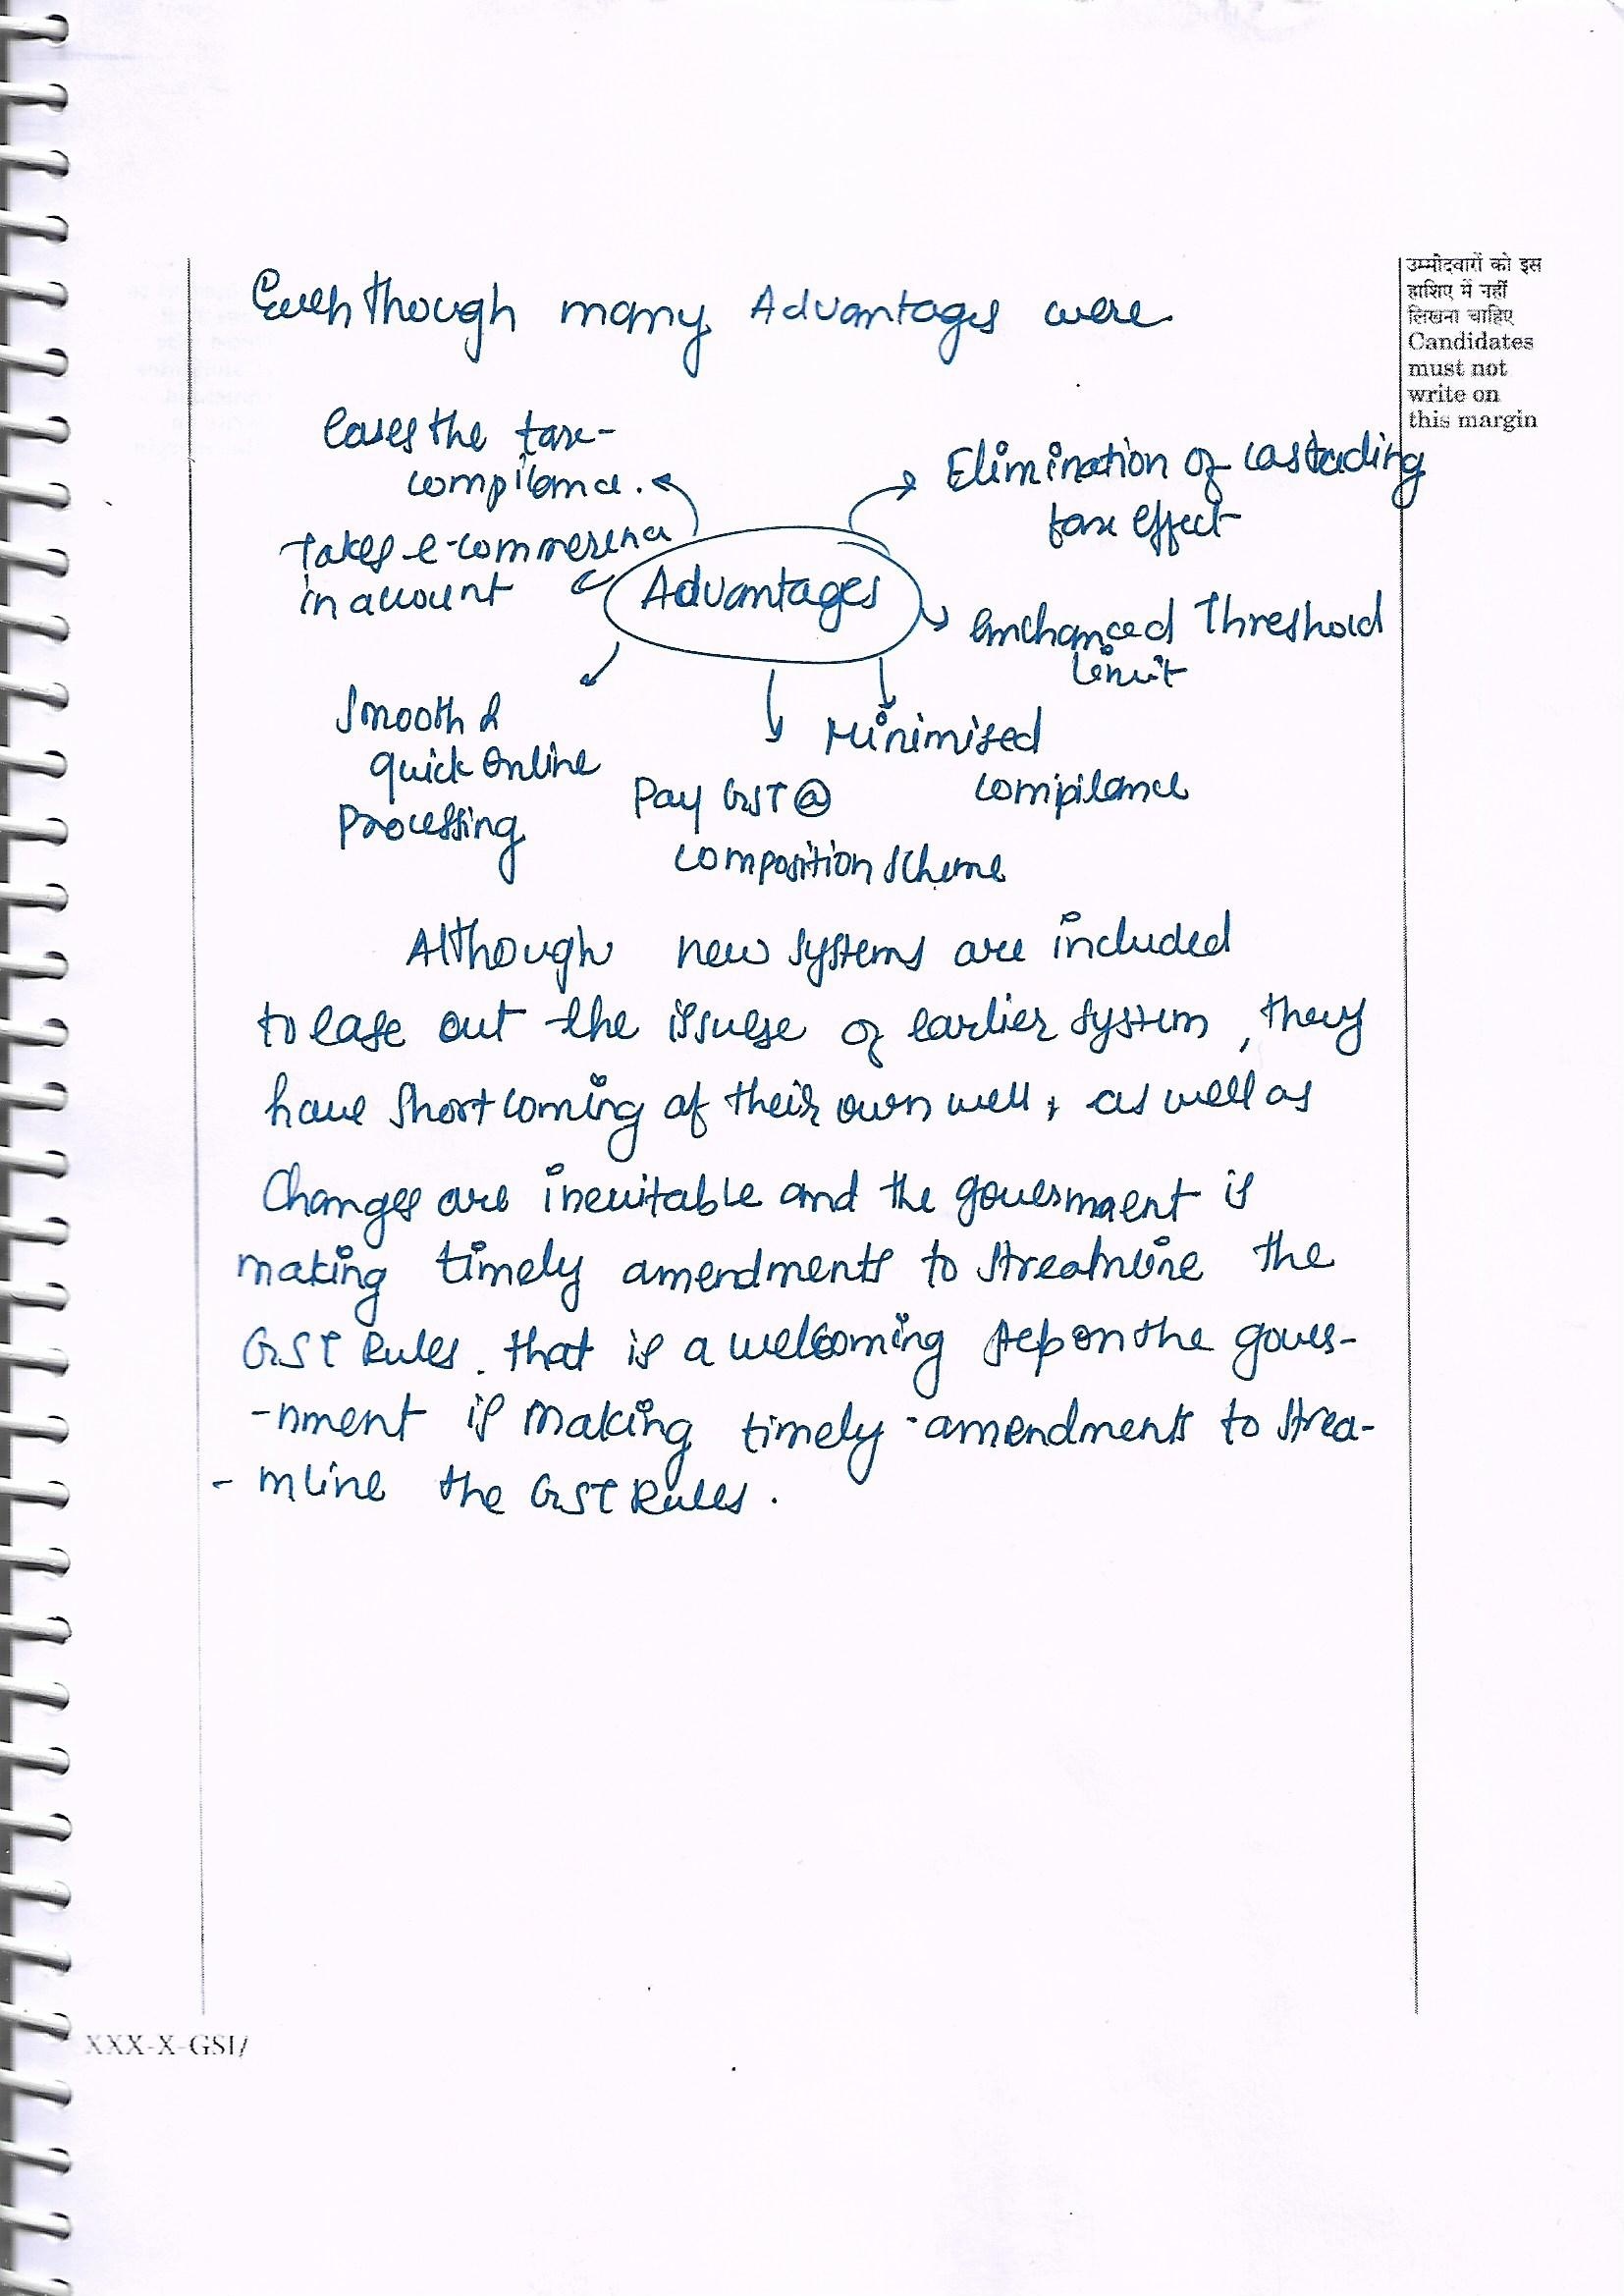 Eventhough many Advantages were
eases the tax-
compilance.
Takes e-commerence
in account
Elimination of castcading
tax effect
Advantages
enchanced Threshold
limit
Smooth &
quick online
Processing
Minimised
compilance
Pay GST @
composition scheme
Although new systems are included
to ease out the issuese of earlier system, they
have shortcoming of their own well, as well as
Changes are inevitable and the government is
making timely amendments to streamline the
GST Rules. that is a welcoming step on the gover-
-nment is making timely amendments to strea-
-mline the GST Rules.
उम्मीदवारों को इस
हाशिए में नहीं
लिखना चाहिए
Candidates
must not
write on
this margin
XXX-X-GSI/